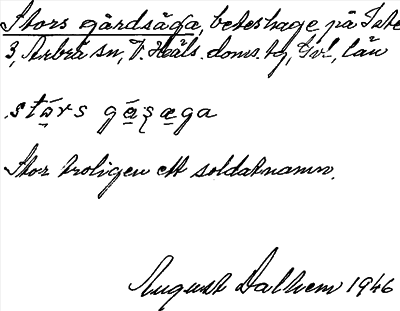 Stors gårdsåga, beteshage på Iste
3, Arbrå sn, V. Häls. doms. tg, Gvl, län
stå̱rs gá̱ʂæ̱ga
Stor troligen ett soldatnamn.
August Dalhem 1946